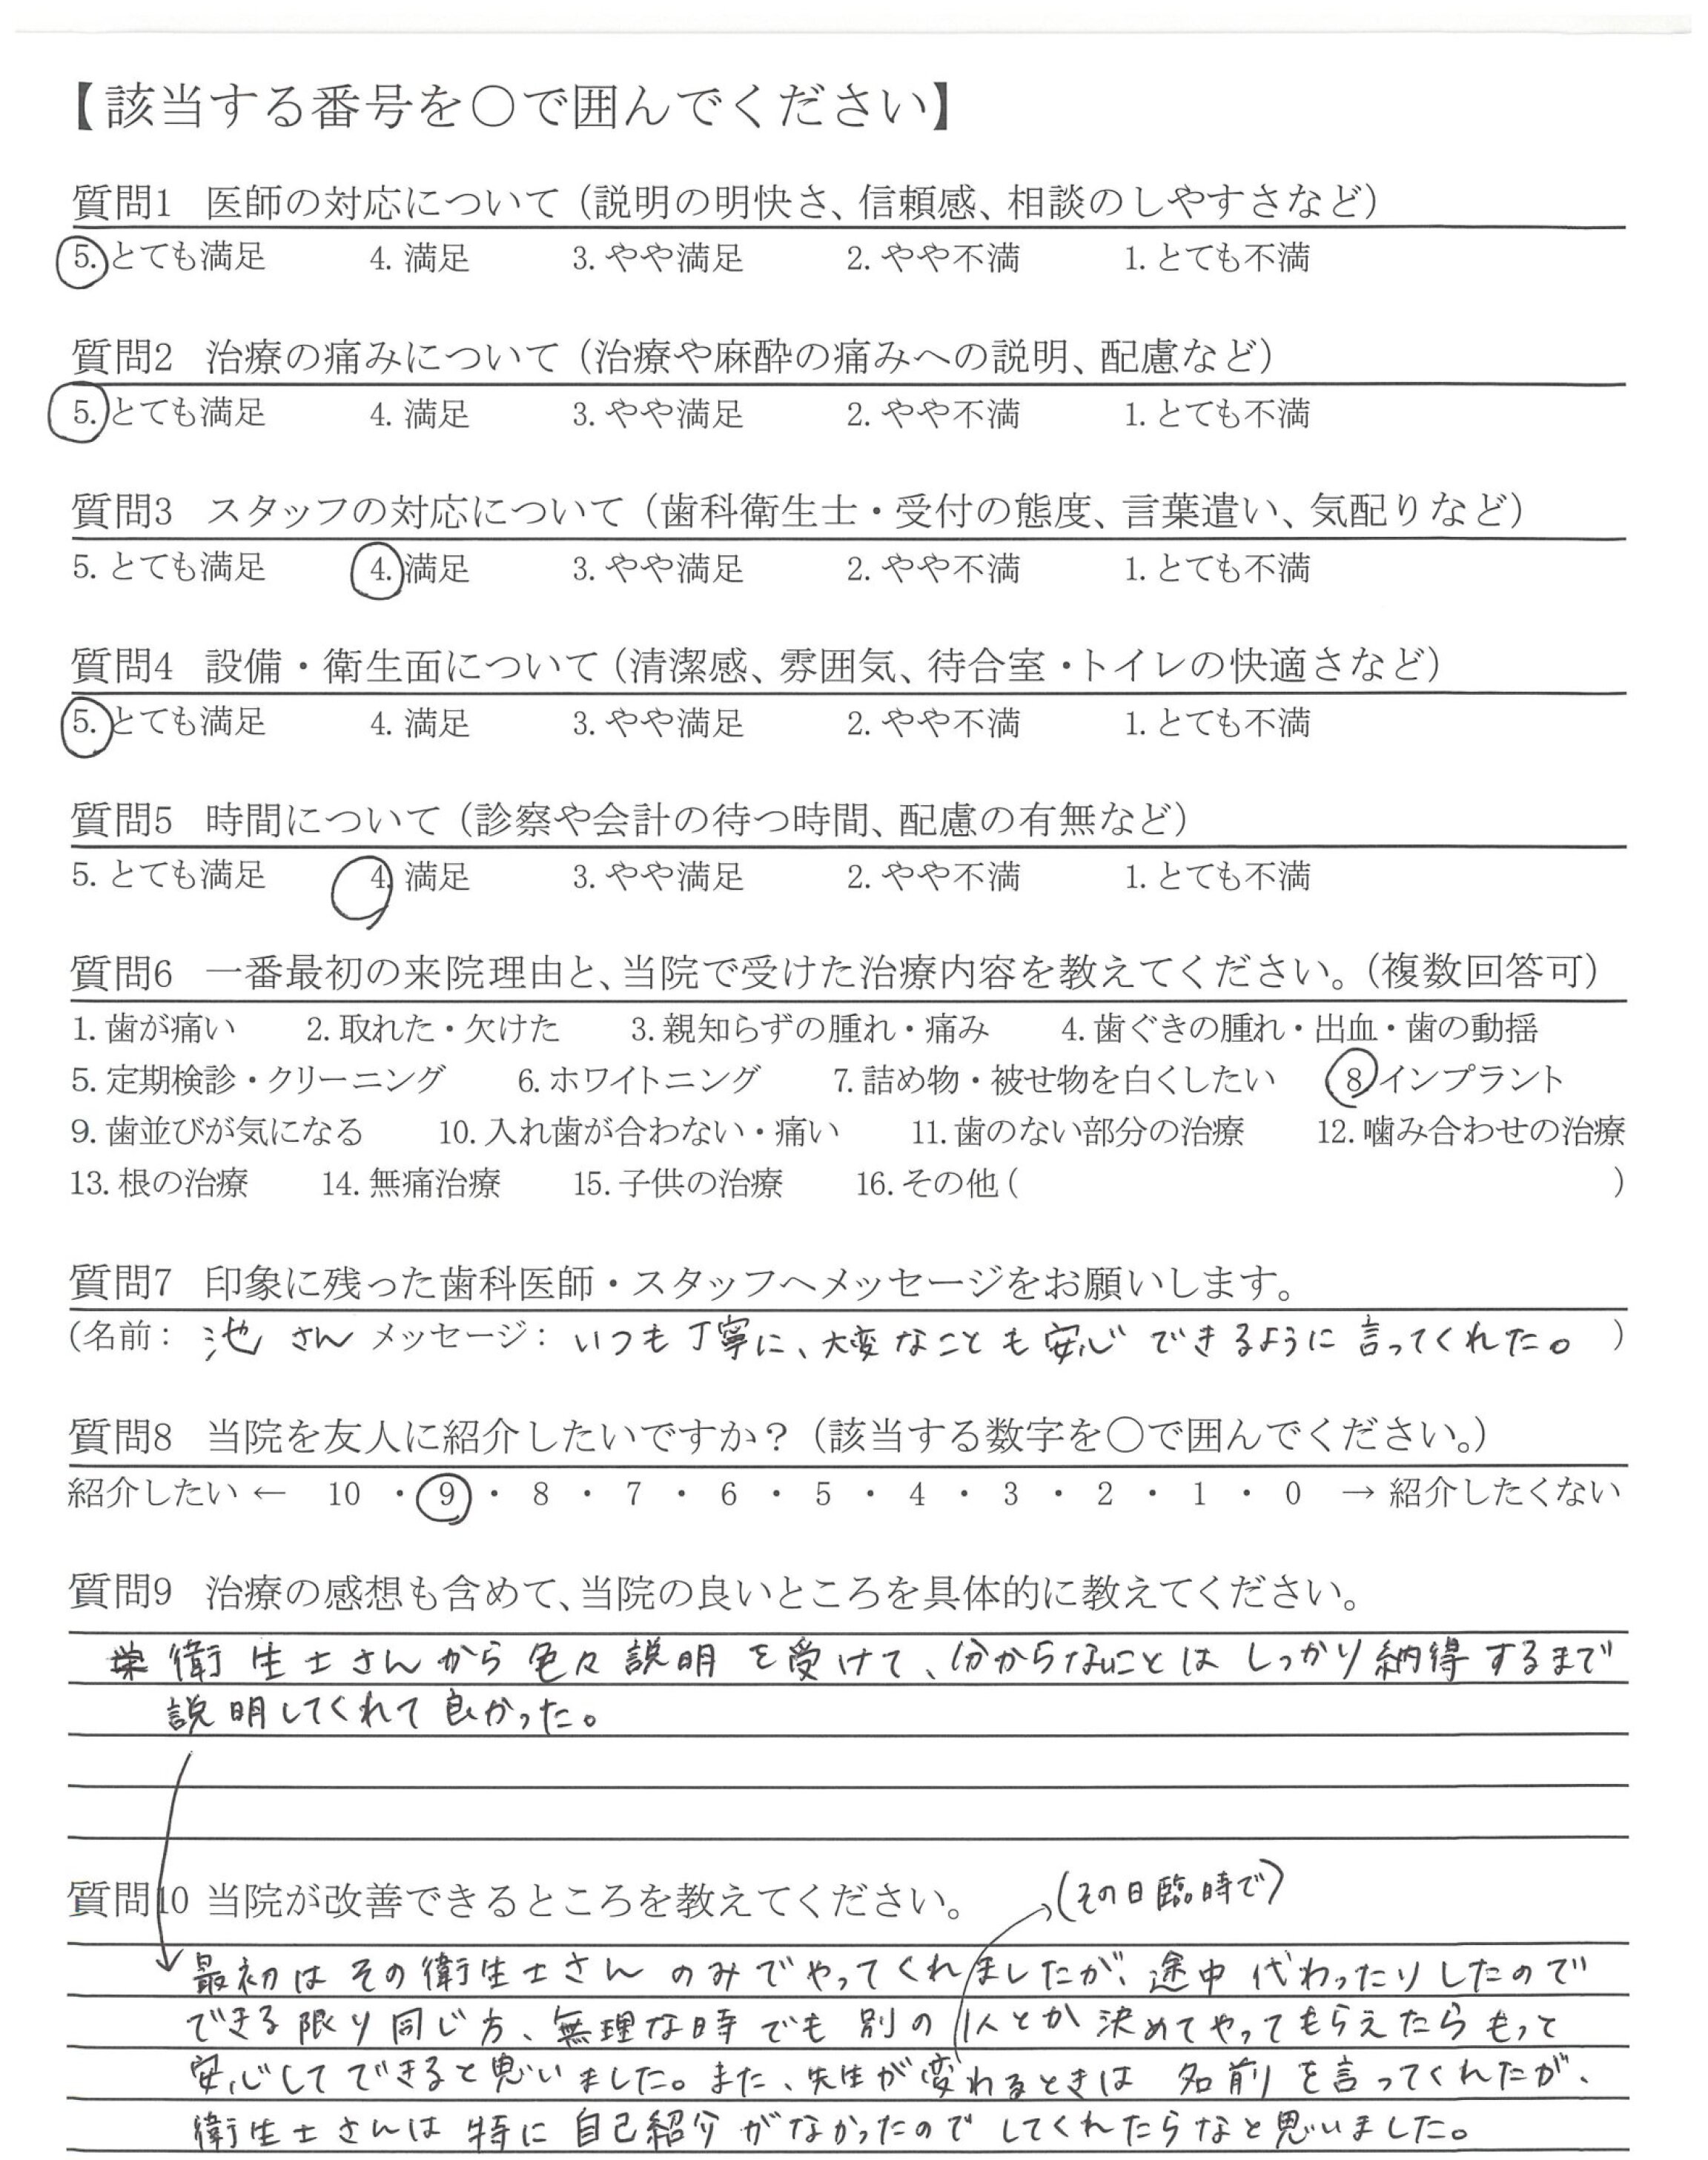 【該当する番号を○で囲んでください】
質問1 医師の対応について（説明の明快さ、信頼感、相談のしやすさなど）
5. とても満足 4. 満足 3. やや満足 2. やや不満 1. とても不満
質問2 治療の痛みについて（治療や麻酔の痛みへの説明、配慮など）
5. とても満足 4. 満足 3. やや満足 2. やや不満 1. とても不満
質問3 スタッフの対応について（歯科衛生士・受付の態度、言葉遣い、気配りなど）
5. とても満足 4. 満足 3. やや満足 2. やや不満 1. とても不満
質問4 設備・衛生面について（清潔感、雰囲気、待合室・トイレの快適さなど）
5. とても満足 4. 満足 3. やや満足 2. やや不満 1. とても不満
質問5 時間について（診察や会計の待つ時間、配慮の有無など）
5. とても満足 4. 満足 3. やや満足 2. やや不満 1. とても不満
質問6 一番最初の来院理由と、当院で受けた治療内容を教えてください。（複数回答可）
1. 歯が痛い 2. 取れた・欠けた 3. 親知らずの腫れ・痛み 4. 歯ぐきの腫れ・出血・歯の動揺
5. 定期検診・クリーニング 6. ホワイトニング 7. 詰め物・被せ物を白くしたい 8 インプラント
9. 歯並びが気になる 10. 入れ歯が合わない・痛い 11. 歯のない部分の治療 12. 噛み合わせの治療
13. 根の治療 14. 無痛治療 15. 子供の治療 16. その他（ ）
質問7 印象に残った歯科医師・スタッフへメッセージをお願いします。
（名前： 池さん メッセージ： いつも丁寧に、大変なことも安心できるように言ってくれた。 ）
質問8 当院を友人に紹介したいですか？（該当する数字を○で囲んでください。）
紹介したい ← 10 ・ 9 ・ 8 ・ 7 ・ 6 ・ 5 ・ 4 ・ 3 ・ 2 ・ 1 ・ 0 → 紹介したくない
質問9 治療の感想も含めて、当院の良いところを具体的に教えてください。
衛生士さんから色々説明を受けて、分からないことはしっかり納得するまで
説明してくれて良かった。
質問10 当院が改善できるところを教えてください。
（その日臨時で）
最初はその衛生士さんのみでやってくれましたが、途中代わったりしたので
できる限り同じ方、無理な時でも別の1人とか決めてやってもらえたらもっと
安心してできると思いました。また、先生が変わるときは名前を言ってくれたが、
衛生士さんは特に自己紹介がなかったのでしてくれたらなと思いました。